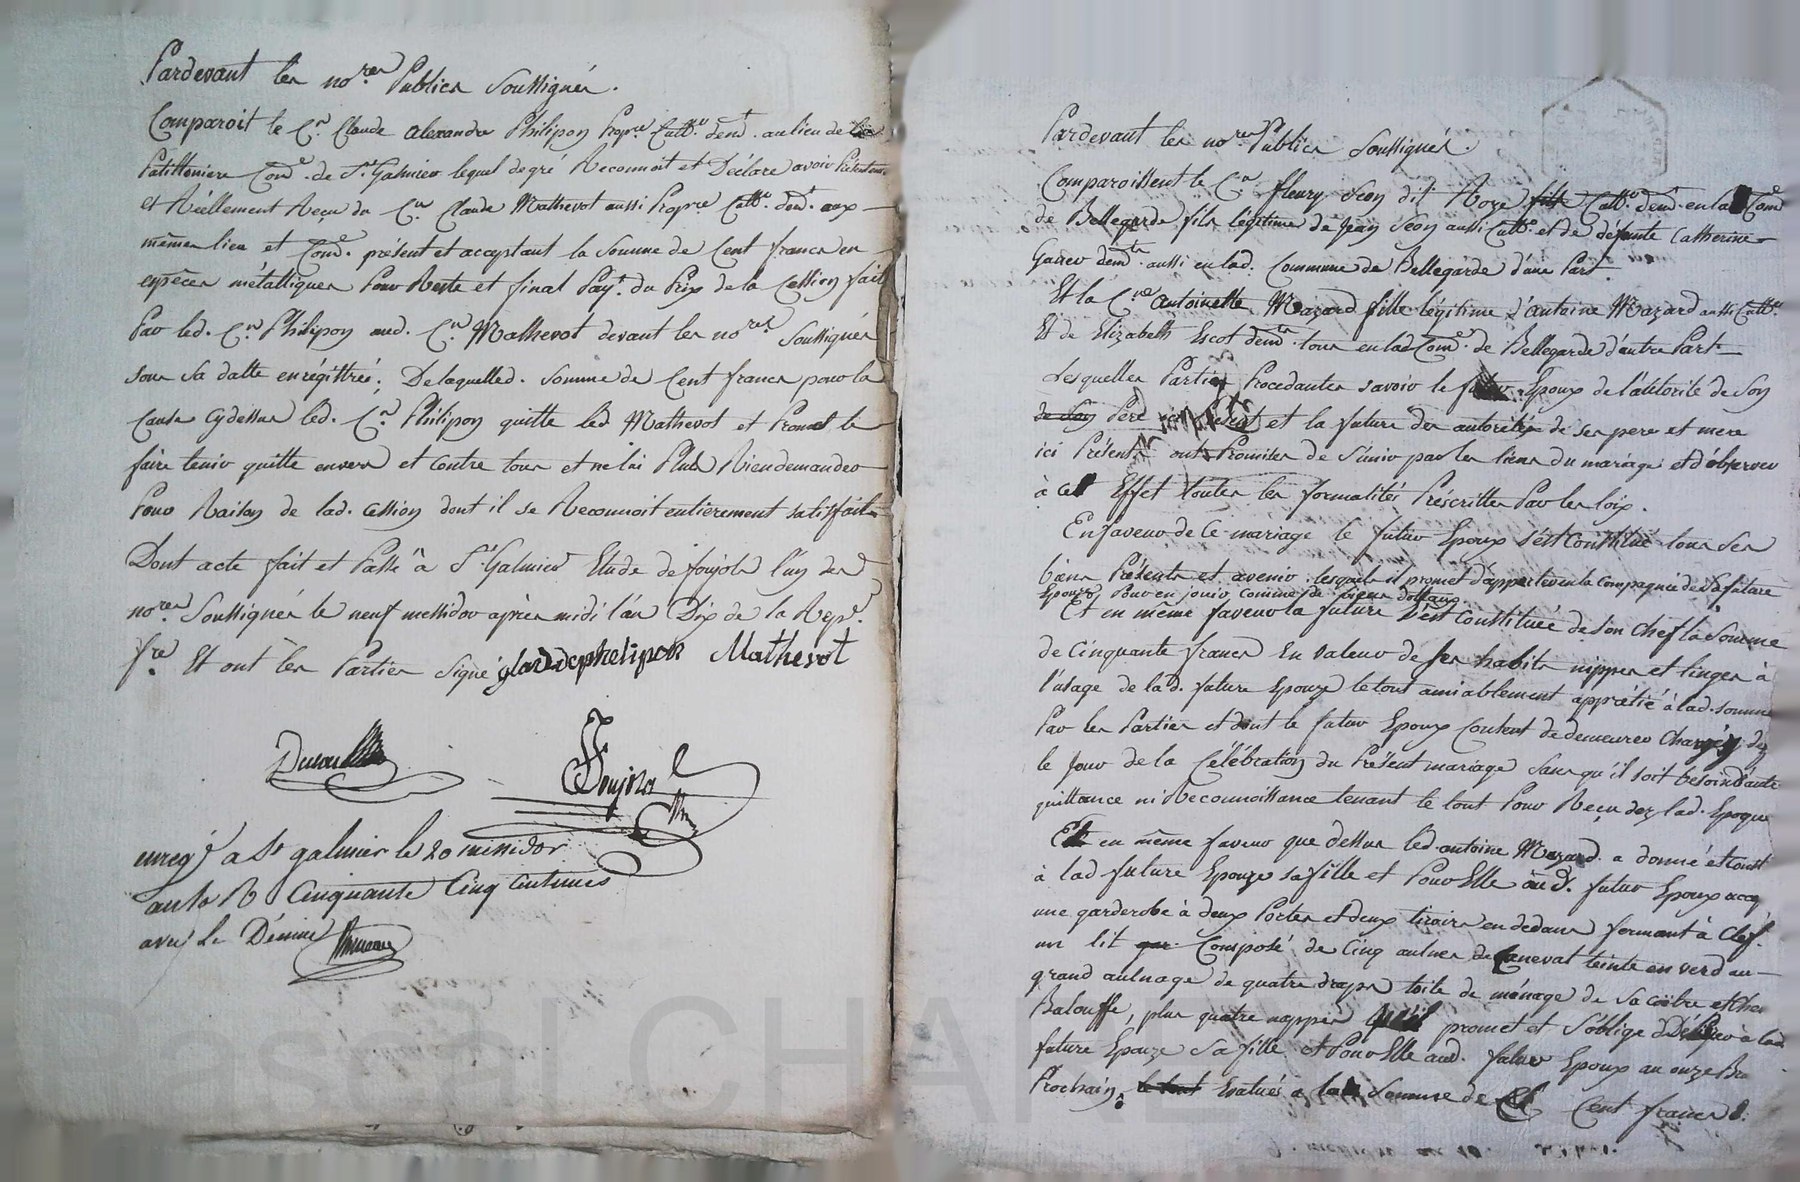 Pardevant les no.res Publics Soussignés.
Comparoit le C.n Claude alexandre Philipon Prop.re Cult.r dem.t au lieu de la
Patissoniere Com.e de S.t Galmier lequel de gré Reconnoit et Déclare avoir Présentement
et Réellement Reçu du C.n Claude Mathevot aussi Prop.re Cult.r dem.t aux
mêmes lieu et Com.e présent et acceptant la Somme de Cent francs en
espèces métalliques Pour Reste et final Pay.t du Prix de la Cession fait
Par led. C.n Philipon aud. C.n Mathevot devant les no.res Soussignés
sous sa datte enrégittrée; De laquelle d. Somme de Cent francs pour la
Cause cy dessus led. C.n Philipon quitte led Mathevot et Promet le
faire tenir quitte envers et Contre tous et ne lui Plus Rien demander
Pour Raison de lad. Cession dont il se Reconnoit entierement satisfait
Dont acte fait et Passé à S.t Galmier Etude de foujols l'un des
no.res Soussignés le neuf messidor après midi l'an Dix de la Rep.e
fr.e Et ont les Parties Signé glaudephelipon Mathevot
Foujols
enreg.é a St galmier le 20 messidor
an 10 R Cinquante Cinq Centimes
avec le Décime
Pardevant les no.res Publics Soussignés.
Comparoissent le C.n fleury Seon dit Roze fils Cult.r dem.t en la Com.e
de Bellegarde fils légitime de Jean Seon aussi Cult.r et de défunte Catherine
Garier dem.t aussi en lad. Commune de Bellegarde d'une Part
Et la C.ne Antoinette Mazard fille légitime d'antoine Mazard aussi Cult.r
Et de Elizabeth Escot dem.ts tous en lad Com.e de Bellegarde d'autre Part
Lesquelles Parties Procedantes savoir le futur Epoux de l'autorité de Son
de Son Pere et la future des autorités de ses pere et mere
ici Présents ont Promises de S'unir par les liens du mariage et d'observer
à cet Effet toutes les formalités Préscrittes Par les loix.
En faveur de Ce mariage le futur Epoux S'est Constitué tous Ses
biens Présents et avenir lesquels il promet d'apporter en la Compagnie de Sa future
Epouze Pour en jouir comme de biens dotaux
Et en même faveur la future S'est Constituée de Son Chef la Somme
de Cinquante francs En valeur de Ses habits nippes et linges à
l'usage de lad. future Epouze le tout amiablement apprétié à lad. Somme
Par les Parties et dont le futur Epoux Content de demeurer Chargé dez
le Jour de la Célébration du Présent mariage Sans qu'il soit besoin d'autre
quittance ni Reconnoissance tenant le tout Pour Reçu dez lad. Epoque
Et en même faveur que dessus led antoine Mazard a donné et Const
à lad future Epouze sa fille et Pour Elle au d. futur Epoux acc
une garderobe à deux Portes et deux tiroirs en dedans fermant à Clef.
un lit Composé de Cinq aulnes de Canevat teinte en verd au
grand aulnage de quatre draps toile de ménage de Sa
Balouffe, plus quatre nappes qu'il promet et S'oblige de Délivrer à lad
future Epouze Sa fille et Pour Elle aud. futur Epoux au onze
Prochain, le tout Evalués a la Somme de Cent francs